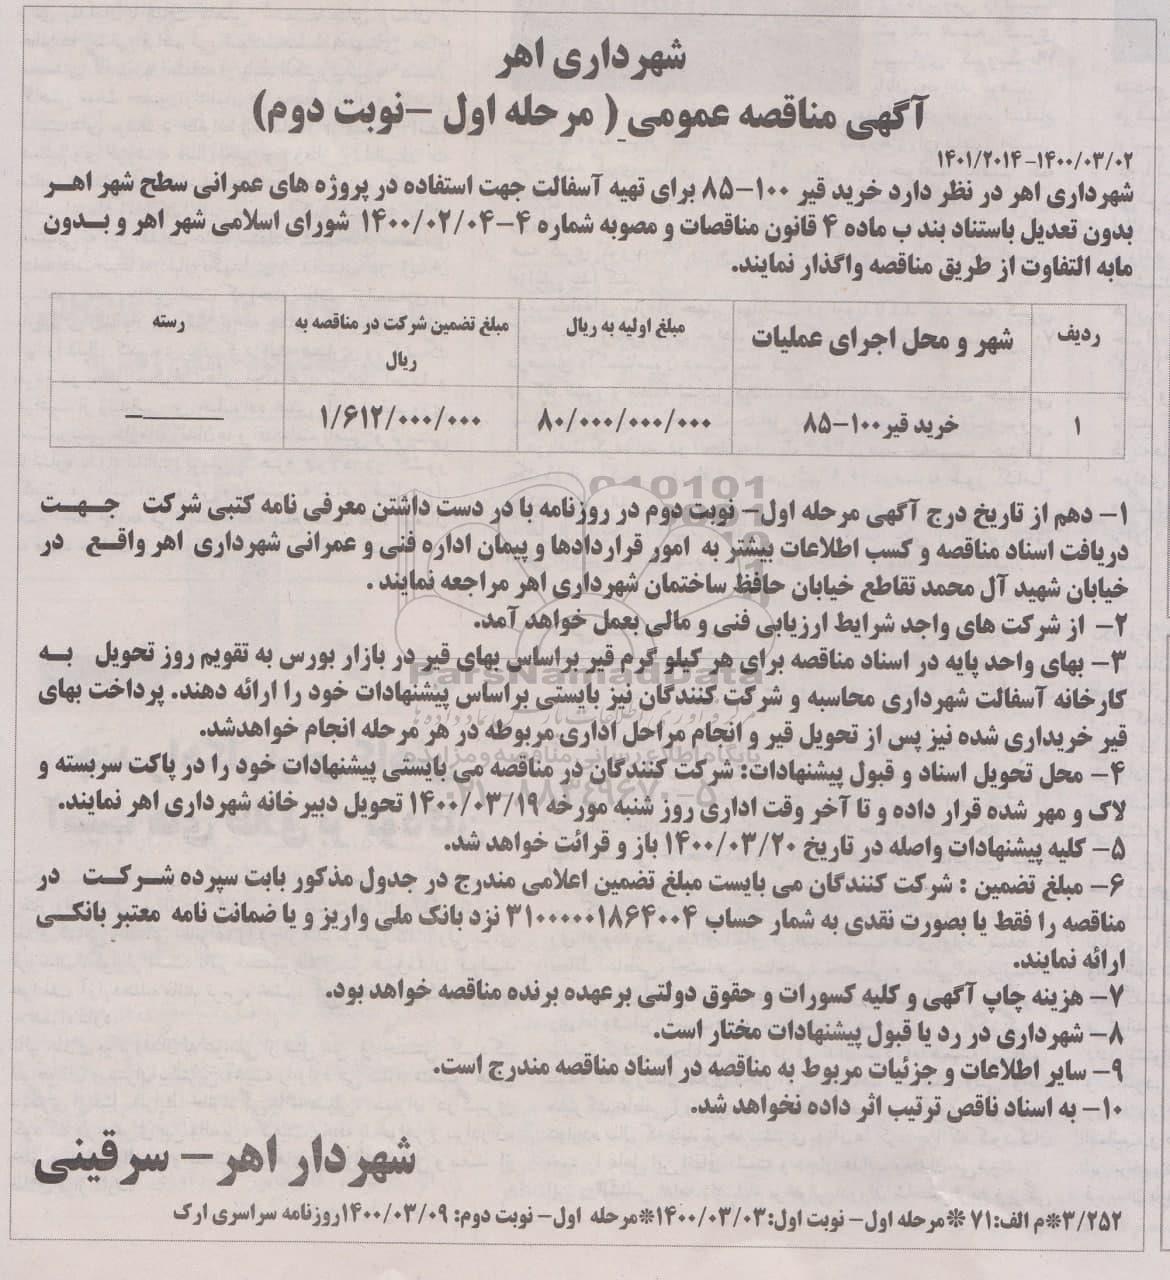 شهرداری اهر
آگهی مناقصه عمومی ( مرحله اول –نوبت دوم)
۱۴۰۱/۲۰۱۴-۱۴۰۰/۰۳/۰۲
شهرداری اهر در نظر دارد خرید قیر ۱۰۰–۸۵ برای تهیه آسفالت جهت استفاده در پروژه های عمرانی سطح شهر اهر
بدون تعدیل باستناد بند ب ماده ۴ قانون مناقصات و مصوبه شماره ۴–۱۴۰۰/۰۲/۰۴ شورای اسلامی شهر اهر و بدون
مابه التفاوت از طریق مناقصه واگذار نمایند.
ردیف | شهر و محل اجرای عملیات | مبلغ اولیه به ریال | مبلغ تضمین شرکت در مناقصه به ریال | رسته
۱ | خرید قیر۱۰۰–۸۵ | ۸۰/۰۰۰/۰۰۰/۰۰۰ | ۱/۶۱۲/۰۰۰/۰۰۰ | ———
۱– دهم از تاریخ درج آگهی مرحله اول– نوبت دوم در روزنامه با در دست داشتن معرفی نامه کتبی شرکت جهت
دریافت اسناد مناقصه و کسب اطلاعات بیشتر به امور قراردادها و پیمان اداره فنی و عمرانی شهرداری اهر واقع در
خیابان شهید آل محمد تقاطع خیابان حافظ ساختمان شهرداری اهر مراجعه نمایند .
۲– از شرکت های واجد شرایط ارزیابی فنی و مالی بعمل خواهد آمد.
۳– بهای واحد پایه در اسناد مناقصه برای هر کیلو گرم قیر براساس بهای قیر در بازار بورس به تقویم روز تحویل به
کارخانه آسفالت شهرداری محاسبه و شرکت کنندگان نیز بایستی براساس پیشنهادات خود را ارائه دهند. پرداخت بهای
قیر خریداری شده نیز پس از تحویل قیر و انجام مراحل اداری مربوطه در هر مرحله انجام خواهدشد.
۴– محل تحویل اسناد و قبول پیشنهادات: شرکت کنندگان در مناقصه می بایستی پیشنهادات خود را در پاکت سربسته و
لاک و مهر شده قرار داده و تا آخر وقت اداری روز شنبه مورخه ۱۴۰۰/۰۳/۱۹ تحویل دبیرخانه شهرداری اهر نمایند.
۵– کلیه پیشنهادات واصله در تاریخ ۱۴۰۰/۰۳/۲۰ باز و قرائت خواهد شد.
۶– مبلغ تضمین : شرکت کنندگان می بایست مبلغ تضمین اعلامی مندرج در جدول مذکور بابت سپرده شرکت در
مناقصه را فقط یا بصورت نقدی به شمار حساب ۳۱۰۰۰۰۰۱۸۶۴۰۰۴ نزد بانک ملی واریز و یا ضمانت نامه معتبر بانکی
ارائه نمایند.
۷– هزینه چاپ آگهی و کلیه کسورات و حقوق دولتی برعهده برنده مناقصه خواهد بود.
۸– شهرداری در رد یا قبول پیشنهادات مختار است.
۹– سایر اطلاعات و جزئیات مربوط به مناقصه در اسناد مناقصه مندرج است.
۱۰– به اسناد ناقص ترتیب اثر داده نخواهد شد.
شهردار اهر – سرقینی
۳/۲۵۲*م الف:۷۱ *مرحله اول– نوبت اول:۱۴۰۰/۰۳/۰۳*مرحله اول– نوبت دوم: ۱۴۰۰/۰۳/۰۹روزنامه سراسری ارک
ParsNamadData
پایگاه اطلاع رسانی مناقصه و مزایده
۰۲۱-۸۸۳۴۹۶۷۰-۵